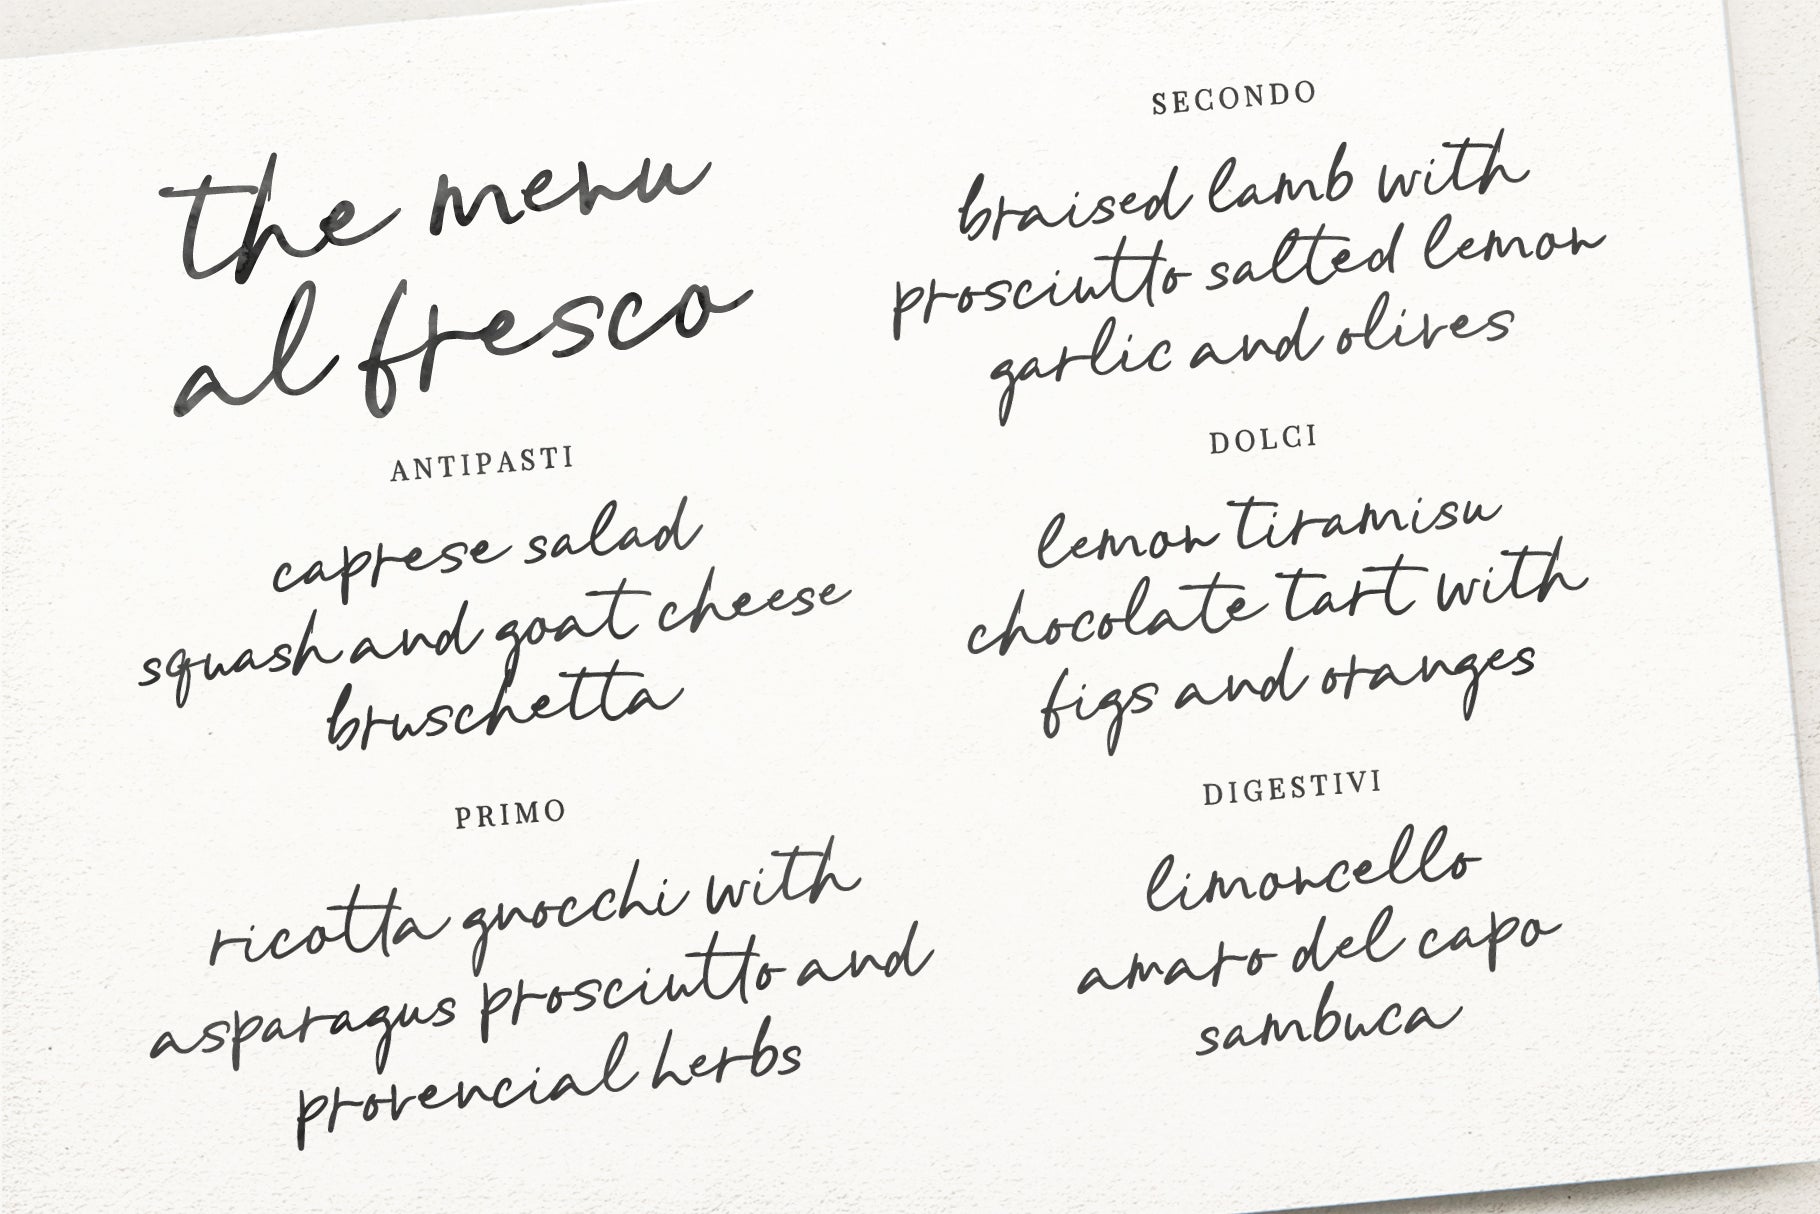 the menu
al fresco
ANTIPASTI
caprese salad
squash and goat cheese
bruschetta
PRIMO
ricotta gnocchi with
asparagus prosciutto and
provencial herbs
SECONDO
braised lamb with
prosciutto salted lemon
garlic and olives
DOLCI
lemon tiramisu
chocolate tart with
figs and oranges
DIGESTIVI
limoncello
amaro del capo
sambuca